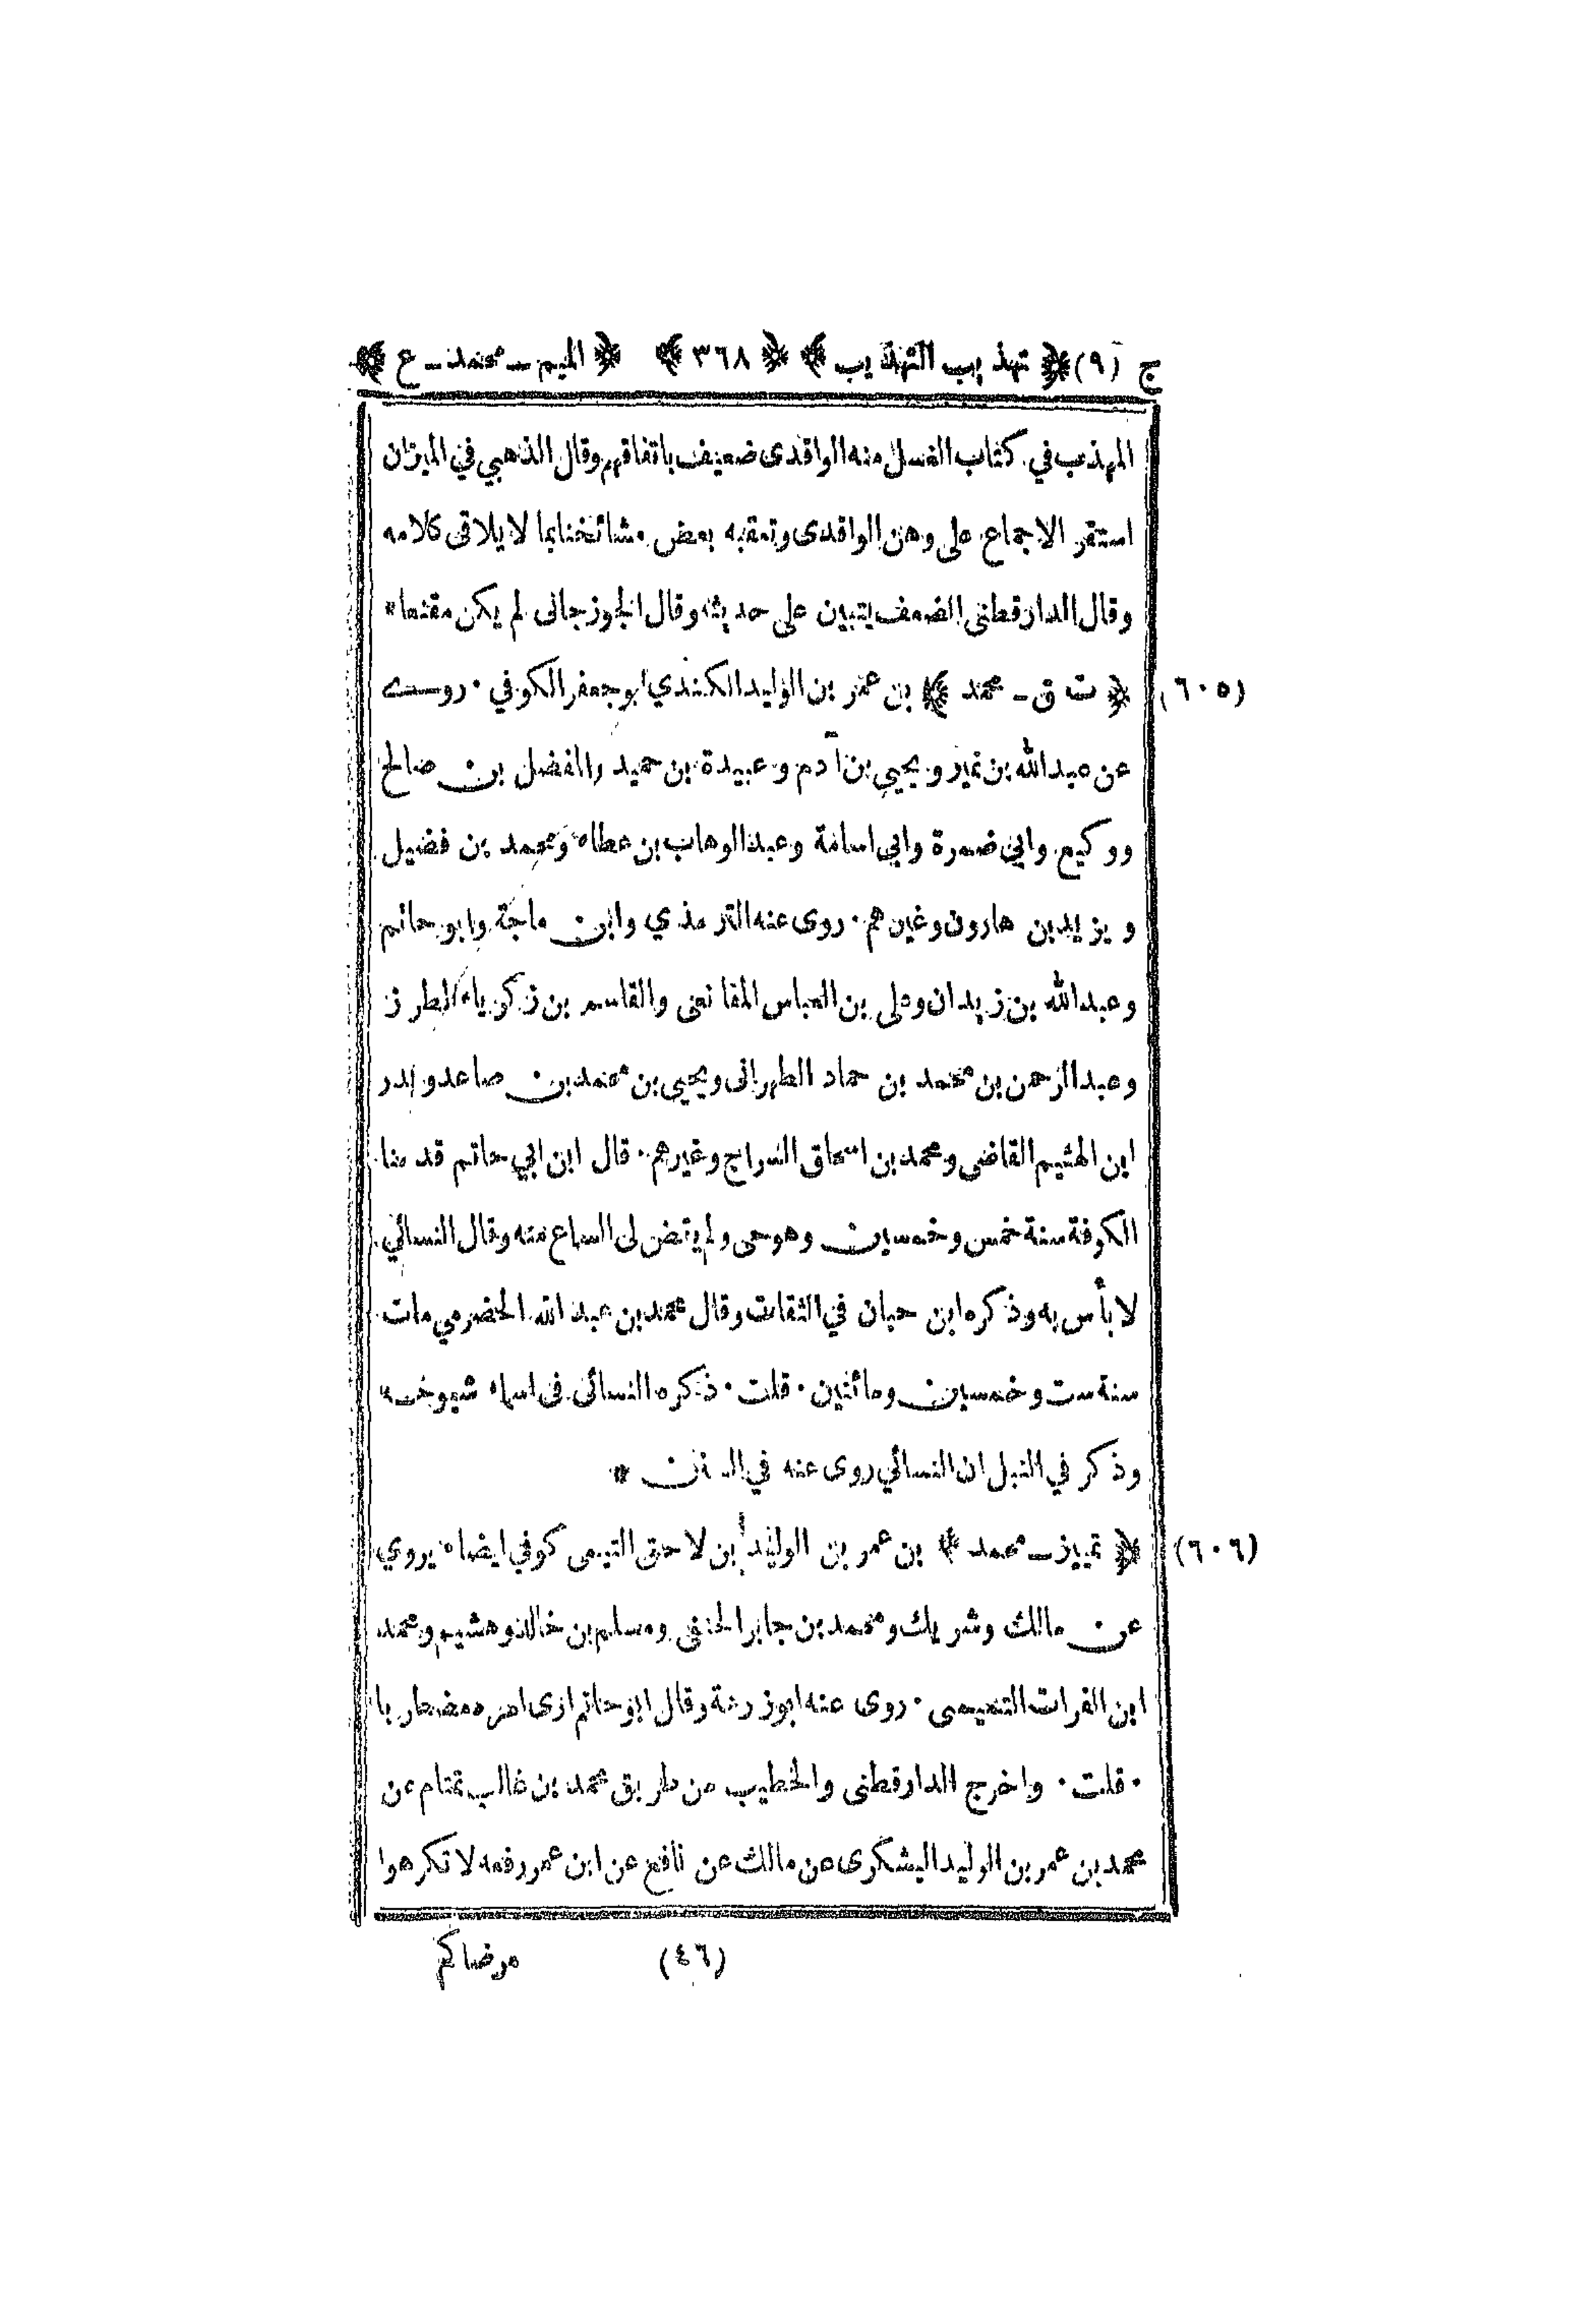 ج (٩) ﴿ تهذيب التهذيب ﴾ ﴿ ٣٦٨ ﴾ ﴿ الميم ـ محمد ـ ع ﴾
المهذب في كتاب الغسل منه الواقدى ضعيف باتفاقهم وقال الذهبي في الميزان
استقر الاجماع على وهن الواقدى وتعقبه بعض مشائخنا بما لا يلاقى كلامه
وقال الدارقطنى الضعف يتبين على حديثه وقال الجوزجانى لم يكن مقنعا *
(٦٠٥) ﴿ ت ق ـ محمد ﴾ بن عمر بن الوليد الكندي ابو جعفر الكوفي . روى
عن عبد الله بن نمير ويحيى بن آدم وعبيدة بن حميد والمفضل بن صالح
ووكيع وابي ضمرة وابي اسامة وعبد الوهاب بن عطاء ومحمد بن فضيل
ويزيد بن هارون وغيرهم . روى عنه الترمذي وابن ماجة وابو حاتم
وعبد الله بن زيدان وعلى بن العباس المقانعى والقاسم بن زكرياء المطرز
وعبد الرحمن بن محمد بن حماد الطهرانى ويحيى بن محمد بن صاعد وبدر
ابن الهثيم القاضى ومحمد بن اسحاق السراج وغيرهم . قال ابن ابي حاتم قدمنا
الكوفة سنة خمس وخمسين وهو حى ولم يقض لى السماع منه وقال النسائي
لا بأس به وذكره ابن حبان في الثقات وقال محمد بن عبد الله الحضرمي مات
سنة ست وخمسين ومائتين . قلت . ذكره النسائى فى اسماء شيوخه
وذكر في النبل ان النسائي روى عنه في السنن *
(٦٠٦) ﴿ تمييز ـ محمد ﴾ بن عمر بن الوليد بن لاحق التيمى كوفي ايضا . يروي
عن مالك وشريك ومحمد بن جابر الحنفى ومسلم بن خالد وهشيم ومحمد
ابن الفرات التميمى . روى عنه ابو زرعة وقال ابو حاتم ارى امره مضطربا
. قلت . واخرج الدارقطنى والخطيب من طريق محمد بن غالب تمتام عن
محمد بن عمر بن الوليد اليشكرى عن مالك عن نافع عن ابن عمر رفعه لا تكرهوا
(٤٦) مرضاكم